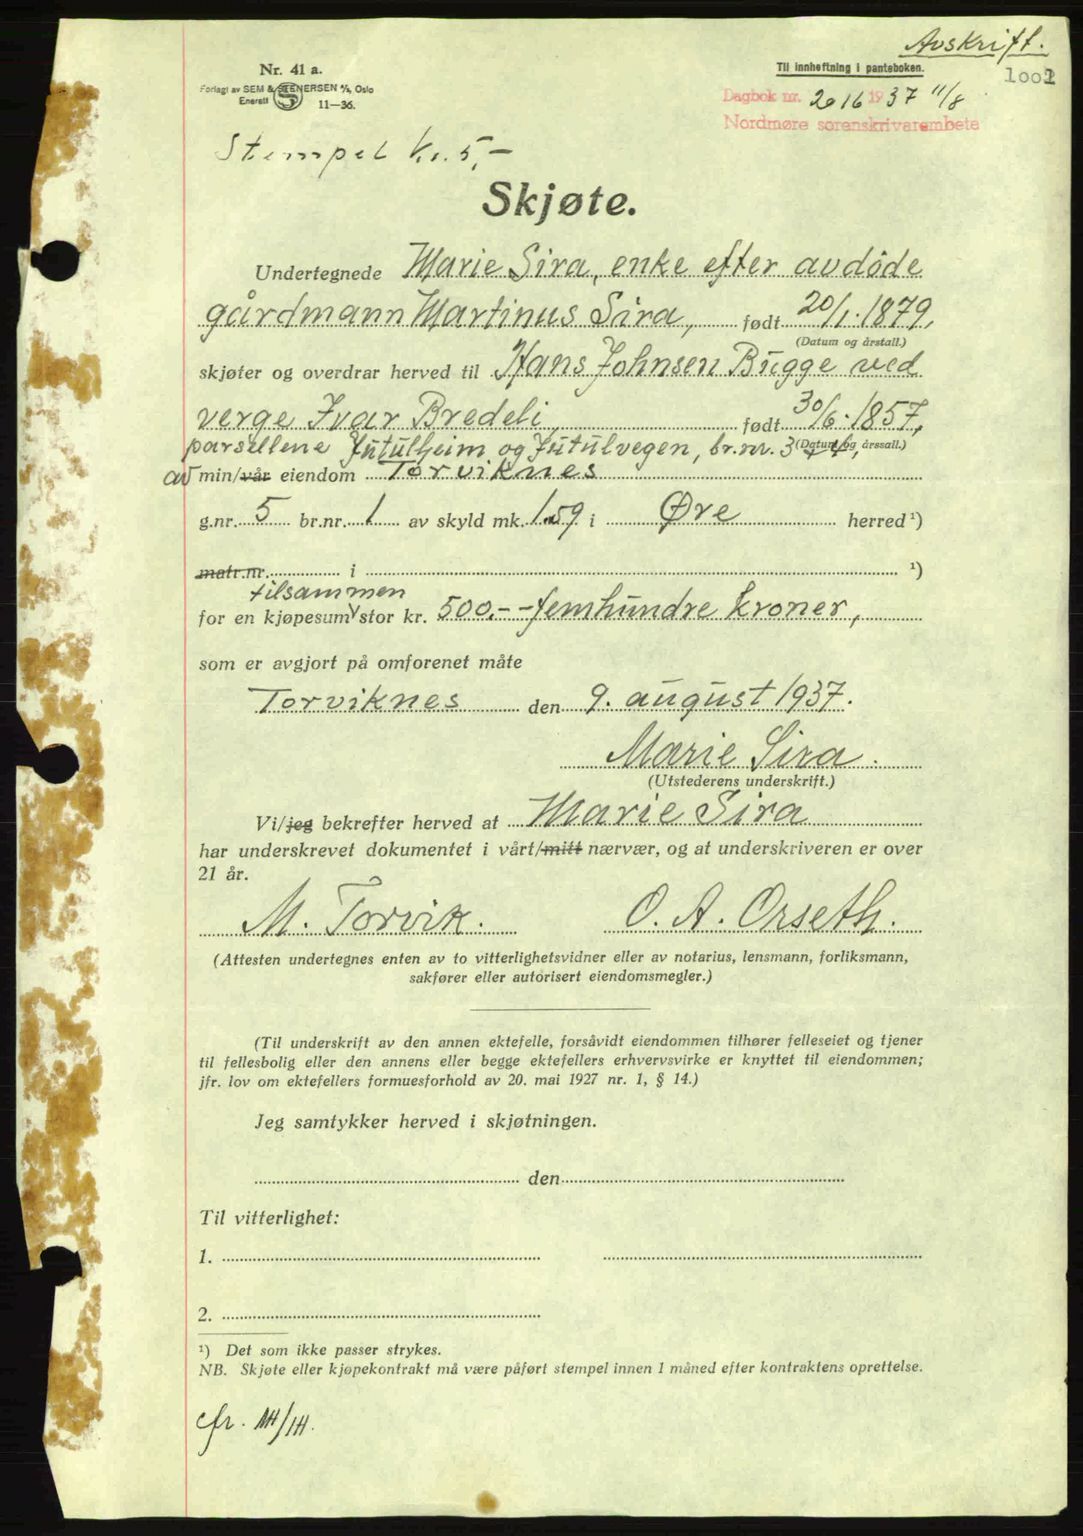 Avskrift.
Nr. 41 a.
Til innheftning i panteboken.
1002
Forlagt av SEM & STENERSEN A/S, Oslo
Enerett 11—36.
Dagbok nr. 2016 1937 11/8
Nordmøre sorenskrivarembete
Stempel kr. 5,-
Skjøte.
Undertegnede Marie Sira, enke efter avdøde
gårdmann Martinus Sira, født 20/1. 1879,
(Datum og årstall.)
skjøter og overdrar herved til Hans Johnsen Bugge ved
verge Ivar Bredeli, født 30/6. 1857,
(Datum og årssall.)
parsellene Jutulheim og Jutulvegen, br.nr. 3
av min/vår eiendom Torviknes
g.nr. 5 br.nr. 1 av skyld mk. 1.59 i Øre herred ¹)
matr.nr. i ¹)
tilsammen
for en kjøpesum stor kr. 500.- - femhundre kroner,
som er avgjort på omforenet måte
Torviknes den 9. august 1937.
Marie Sira.
(Utstederens underskrift.)
Vi/jeg bekrefter herved at Marie Sira
har underskrevet dokumentet i vårt/mitt nærvær, og at underskriveren er over
21 år.
M. Torvik. O. A. Orseth.
(Attesten undertegnes enten av to vitterlighetsvidner eller av notarius, lensmann, forliksmann,
sakfører eller autorisert eiendomsmegler.)
(Til underskrift av den annen ektefelle, forsåvidt eiendommen tilhører felleseiet og tjener
til fellesbolig eller den annens eller begge ektefellers erhvervsvirke er knyttet til eiendommen;
jfr. lov om ektefellers formuesforhold av 20. mai 1927 nr. 1, § 14.)
Jeg samtykker herved i skjøtningen.
den
Til vitterlighet:
1.
2.
¹) Det som ikke passer strykes.
NB. Skjøte eller kjøpekontrakt må være påført stempel innen 1 måned efter kontraktens oprettelse.
cfr.